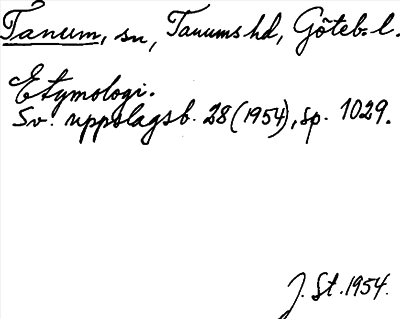 Tanum, sn, Tanums hd, Göteb. l.
Etymologi.
Sv. uppslagsb. 28 (1954), sp. 1029.
J. St. 1954.